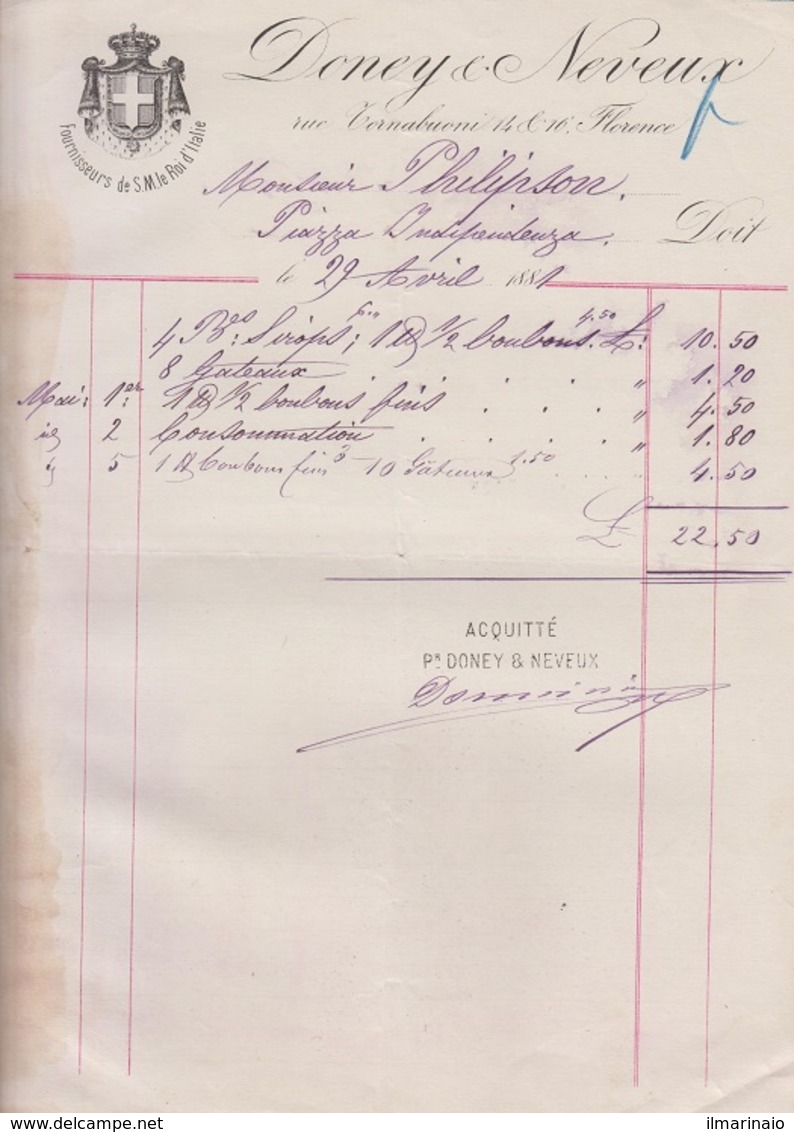 Doney & Neveux
rue Tornabuoni 14 & 16, Florence
Fournisseurs de S.M. le Roi d'Italie
Monsieur Philipson.
Piazza Indipendenza. Doit
le 29 Avril 1881
4 Bes: Sirops; 6." 1 ℔ 1/2 bonbons. 4.50 £: 10.50
8 Gateaux . . . . . " 1.20
Mai: 1er: 1 ℔ 1/2 bonbons fins . . . . " 4.50
id 2 Consommation . . . . . " 1.80
" 5 1 ℔ bonbons fins 3 10 Gâteaux 1.50 4.50
£ 22.50
ACQUITTÉ
PR DONEY & NEVEUX
delcampe.net
ilmarinaio